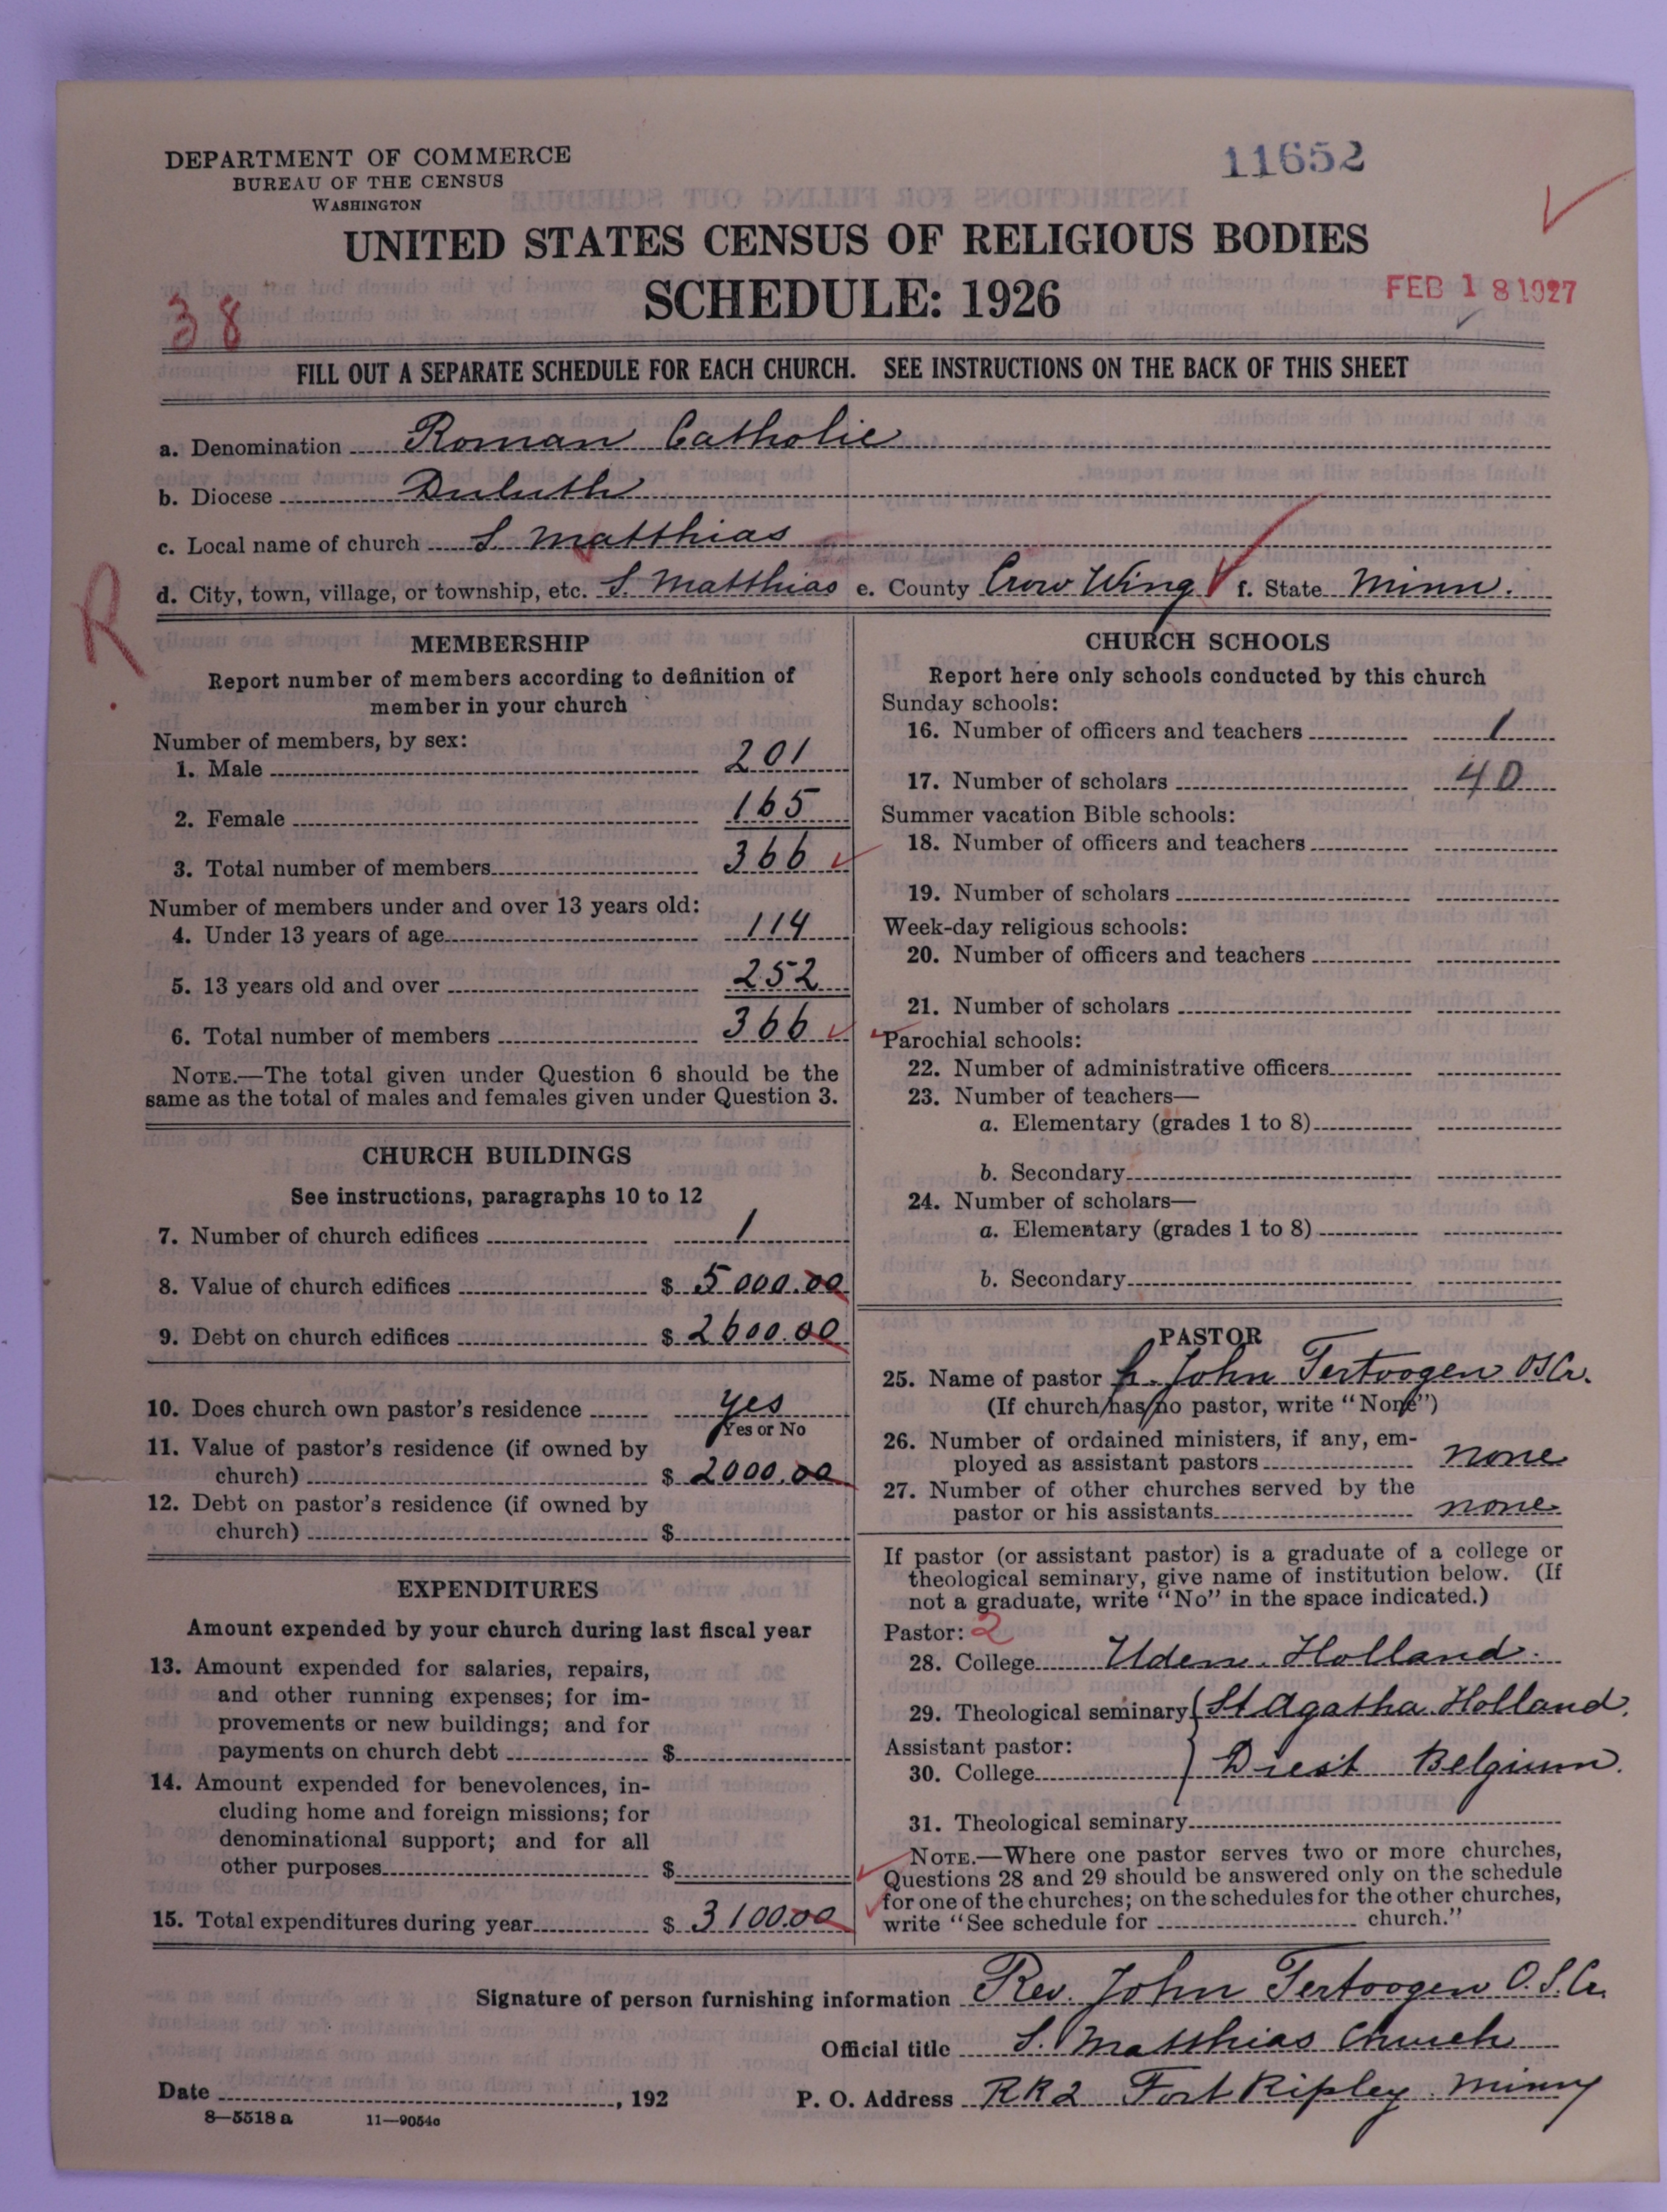 DEPARTMENT OF COMMERCE
BUREAU OF THE CENSUS
WASHINGTON
11652
UNITED STATES CENSUS OF RELIGIOUS BODIES
SCHEDULE: 1926
FEB 18 1927
38
FILL OUT A SEPARATE SCHEDULE FOR EACH CHURCH. SEE INSTRUCTIONS ON THE BACK OF THIS SHEET
a. Denomination Roman Catholic
b. Diocese Duluth
c. Local name of church S. Matthias
d. City, town, village, or township, etc. S. Matthias e. County Crow Wing f. State Minn.
R.
MEMBERSHIP
Report number of members according to definition of
member in your church
Number of members, by sex:
1. Male 201
2. Female 165
3. Total number of members 366
Number of members under and over 13 years old:
4. Under 13 years of age 114
5. 13 years old and over 252
6. Total number of members 366
NOTE.—The total given under Question 6 should be the
same as the total of males and females given under Question 3.
CHURCH BUILDINGS
See instructions, paragraphs 10 to 12
7. Number of church edifices 1
8. Value of church edifices $ 5000.00
9. Debt on church edifices $ 2600.00
10. Does church own pastor's residence yes
Yes or No
11. Value of pastor's residence (if owned by
church) $ 2000.00
12. Debt on pastor's residence (if owned by
church) $
EXPENDITURES
Amount expended by your church during last fiscal year
13. Amount expended for salaries, repairs,
and other running expenses; for im-
provements or new buildings; and for
payments on church debt $
14. Amount expended for benevolences, in-
cluding home and foreign missions; for
denominational support; and for all
other purposes $
15. Total expenditures during year $ 3100.00
CHURCH SCHOOLS
Report here only schools conducted by this church
Sunday schools:
16. Number of officers and teachers 1
17. Number of scholars 40
Summer vacation Bible schools:
18. Number of officers and teachers
19. Number of scholars
Week-day religious schools:
20. Number of officers and teachers
21. Number of scholars
Parochial schools:
22. Number of administrative officers
23. Number of teachers—
a. Elementary (grades 1 to 8)
b. Secondary
24. Number of scholars—
a. Elementary (grades 1 to 8)
b. Secondary
PASTOR
25. Name of pastor John Tertoogen OSCr.
(If church has no pastor, write "None")
26. Number of ordained ministers, if any, em-
ployed as assistant pastors none
27. Number of other churches served by the
pastor or his assistants none
If pastor (or assistant pastor) is a graduate of a college or
theological seminary, give name of institution below. (If
not a graduate, write "No" in the space indicated.)
Pastor: 2
28. College Uden. Holland.
29. Theological seminary { St Agatha Holland.
Assistant pastor:
30. College } Diest Belgium.
31. Theological seminary
NOTE.—Where one pastor serves two or more churches,
Questions 28 and 29 should be answered only on the schedule
for one of the churches; on the schedules for the other churches,
write "See schedule for church."
Signature of person furnishing information Rev. John Tertoogen O.S.Cr.
Official title S. Matthias Church
Date , 192 P. O. Address RR2 Fort Ripley. Minn
8—5518 a 11—9054a